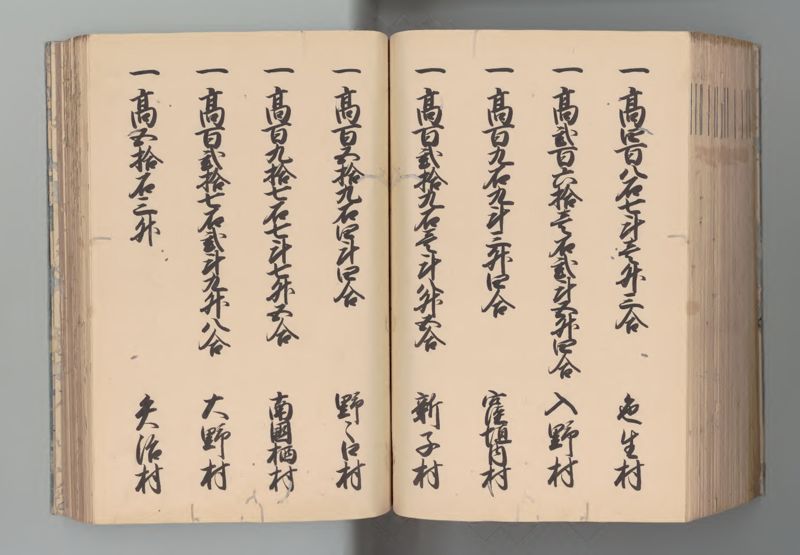 一 高四百八石七斗壱升三合 色生村
一 高弐百六拾壱石弐斗五升四合 入野村
一 高百九石九斗三升四合 窪垣内村
一 高百弐拾九石壱斗八升五合 新子村
一 高百五拾九石四斗四合 野々口村
一 高百九拾七石七斗七升五合 南国栖村
一 高百弐拾七石弐斗九升八合 大野村
一 高五拾石三升 矢治村